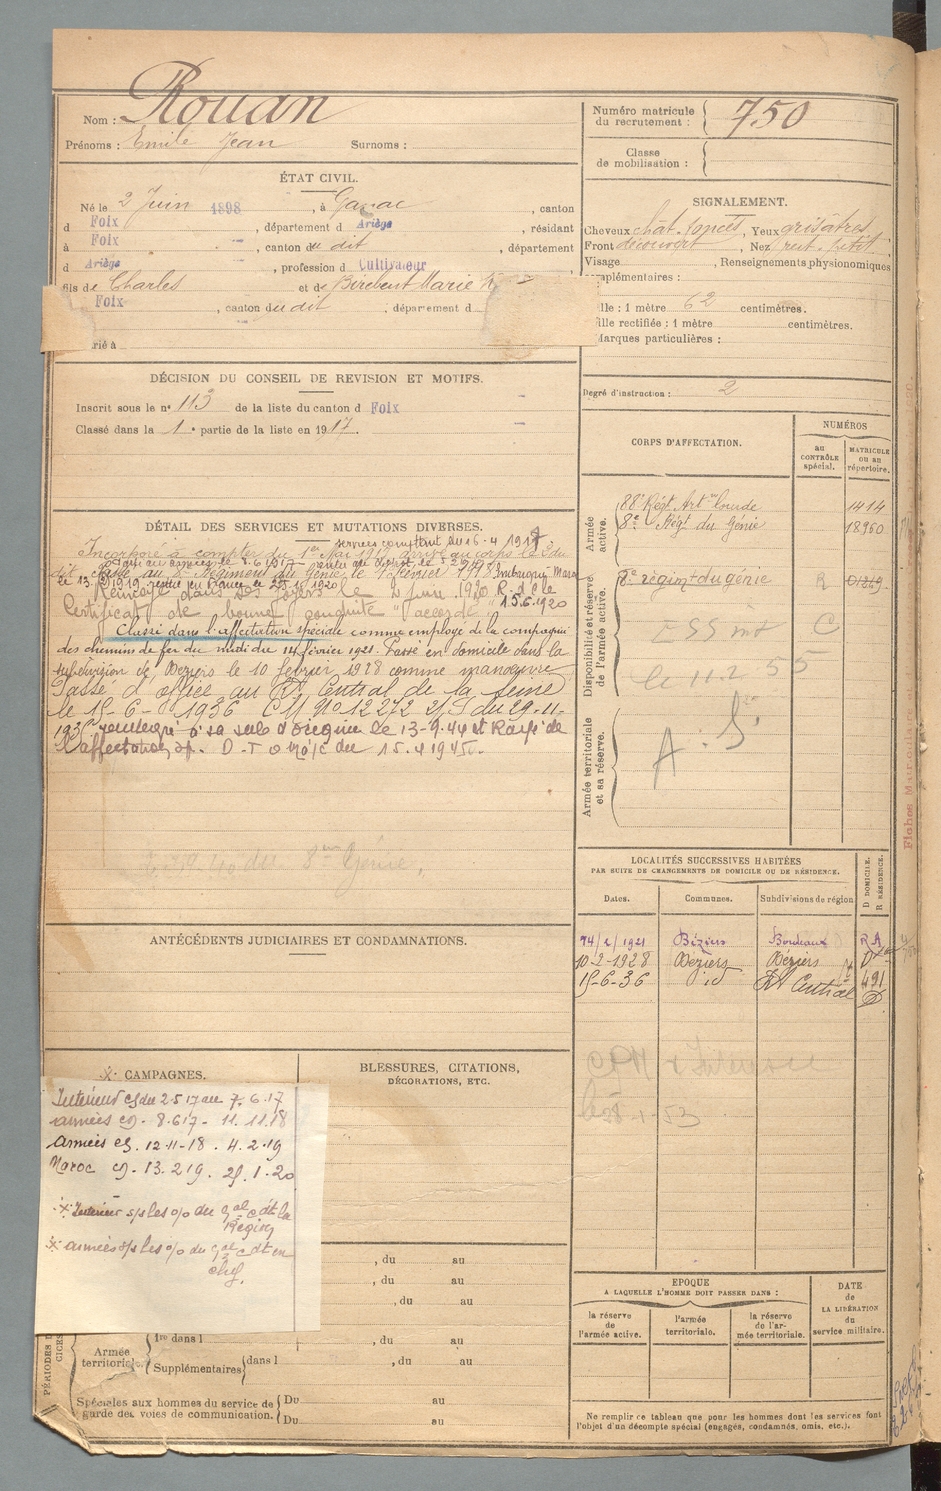 Nom : Rouan
Prénoms : Emile Jean Surnoms :
ÉTAT CIVIL.
Né le 2 Juin 1898, à Ganac, canton
d Foix, département d Ariège, résidant
à Foix, canton du dit, département
d Ariège, profession d Cultivateur
fils de Charles et de Birebent Marie
Foix, canton du dit, département d
rié à
DÉCISION DU CONSEIL DE REVISION ET MOTIFS.
Inscrit sous le n° 113 de la liste du canton d Foix
Classé dans la 1e partie de la liste en 1917.
DÉTAIL DES SERVICES ET MUTATIONS DIVERSES.
services comptant du 16-4 1917
Incorporé à compter du 1er Mai 1917, arrivé au corps le 2 du
dit. Passé au 8e Régiment du Génie le 1er février 1918
le 13.2.1919
Renvoyé dans ses foyers le 2 Juin 1920 R. d. c le
Certificat de bonne conduite "accordé" 15.6.1920
Classé dans l'affectation spéciale comme employé de la compagnie
des chemins de fer du midi du 14 février 1921. Passé en domicile dans la
subdivision de Beziers le 10 février 1928 comme manœuvre
Passé d'office au Rt Central de la Seine
le 15-6-1936 CM 91012272 2/S du 29-11-
193 réintégré à sa subd d'origine le 13-9-44 et Rayé de
l'affectation sp. D-T 15.4 1945.
8eme Génie
ANTÉCÉDENTS JUDICIAIRES ET CONDAMNATIONS.
CAMPAGNES.
Intérieur cs du 2 5 17 au 7. 6. 17
armées cg. 8.617 - 11.11.18
armées cs. 12-11-18 . 4.2.19
Maroc cg. 13.219. 25.1.20
Intérieur s/s les o/o du gal cdt la
Région
armées s/s les o/o du gal cdt en
chef.
BLESSURES, CITATIONS,
DÉCORATIONS, ETC.
, du au
, du au
, du au
1re dans l , du au
Armée
territoriale.
Supplémentaires dans l , du au
Spéciales aux hommes du service de Du au
garde des voies de communication. Du au
Numéro matricule
du recrutement : 750
Classe
de mobilisation :
SIGNALEMENT.
Cheveux chât. foncés, Yeux grisâtres
Front découvert, Nez rect. petit
Visage , Renseignements physionomiques
mplémentaires :
ille : 1 mètre 62 centimètres.
ille rectifiée : 1 mètre centimètres.
Marques particulières :
Degré d'instruction : 2
CORPS D'AFFECTATION.
NUMÉROS
au
CONTRÔLE
spécial.
MATRICULE
ou au
répertoire.
Armée
active.
88e Régt Artrie Lourde 1414
8e Régt du Génie 18960
Disponibilité et réserve
de l'armée active.
8e régimt du génie R 01249
C
le 11.2.55
Armée territoriale
et sa réserve.
A. S
LOCALITÉS SUCCESSIVES HABITÉES
PAR SUITE DE CHANGEMENTS DE DOMICILE OU DE RÉSIDENCE.
D DOMICILE.
R RÉSIDENCE.
Dates. Communes. Subdivisions de région
14/2/1921 Béziers Bordeaux R A
10-2-1928 Beziers Beziers D
15-6-36 id Rt Central 491
D
-1-53
EPOQUE
A LAQUELLE L'HOMME DOIT PASSER DANS :
la réserve
de
l'armée active.
l'armée
territoriale.
la réserve
de l'ar-
mée territoriale.
DATE
de
LA LIBÉRATION
du
service militaire.
Ne remplir ce tableau que pour les hommes dont les services font
l'objet d'un décompte spécial (engagés, condamnés, omis, etc.).